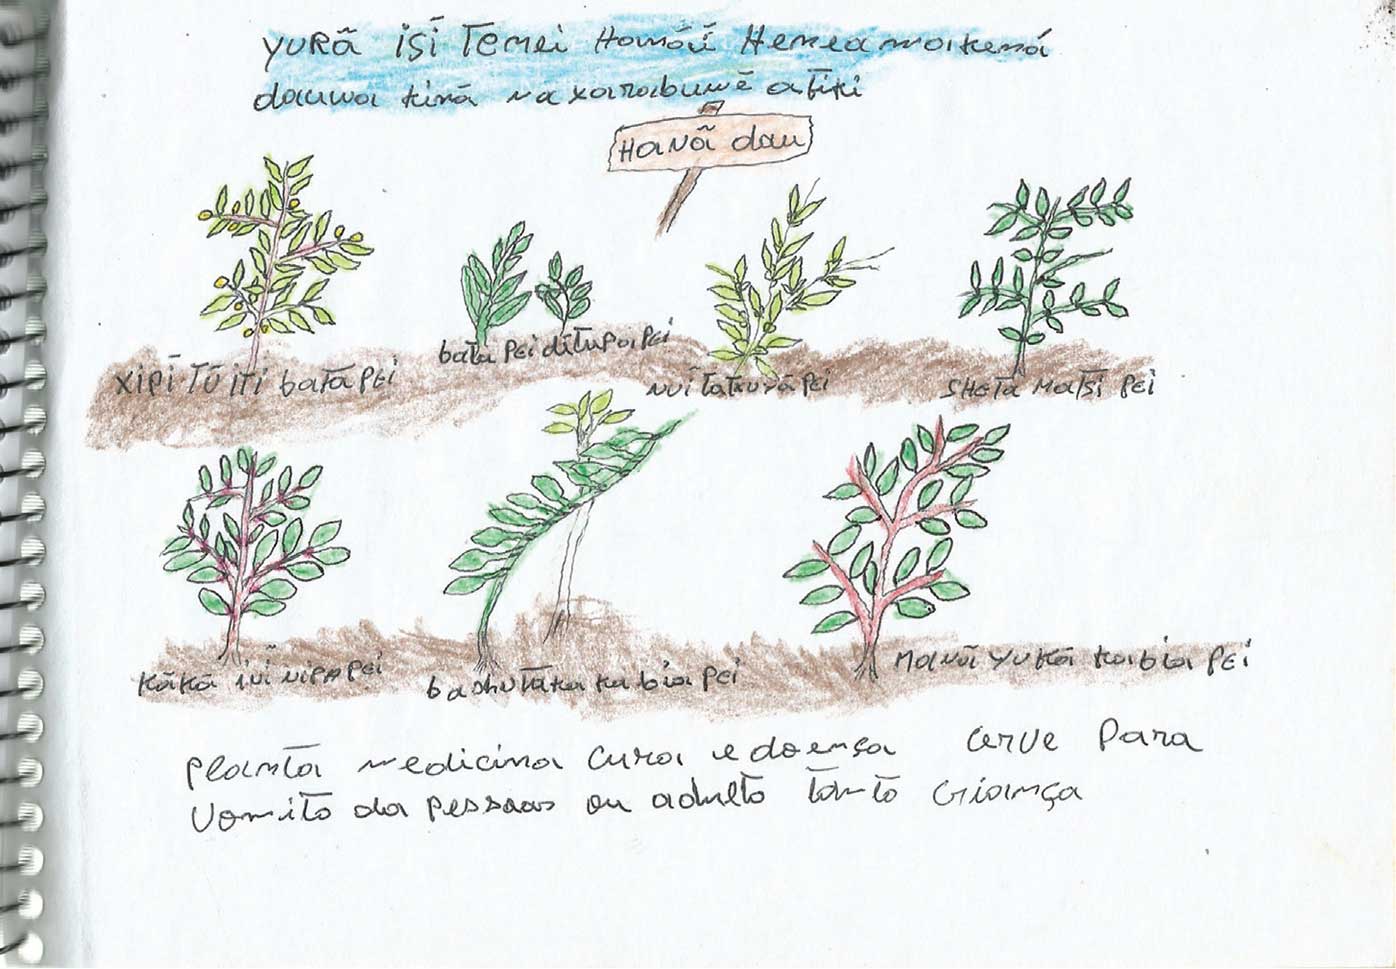 YURÃ ISÍ TEMEI HAMÁÚ HENEA
dauwa kinã na xarabunẽ atiki
HANÃ dau
XIPÍ TŨ ITI batã PEI
bata PEI dítupai PEI
nuí tatxurã PEI
SHETA MATSI PEI
KÃKÃ iui nipa PEI
bashutaka kabia PEI
MANÃ YUKÃ kabia PEI
PLANTA medicina cura e doença cerve Para
Vomito da Pessoas ou adulto tanto criança